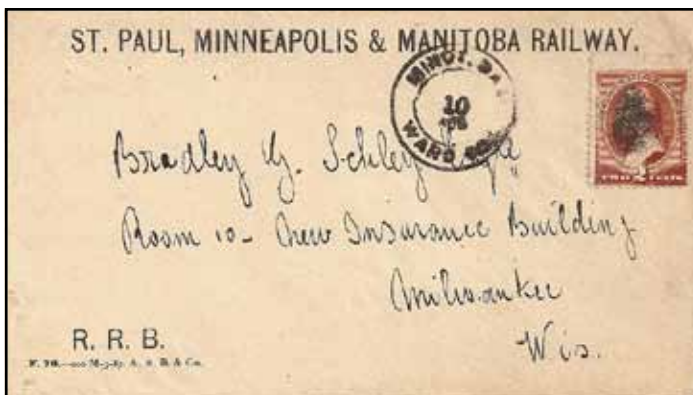 ST. PAUL, MINNEAPOLIS & MANITOBA RAILWAY.
MINOT, DAK
10
WARD CO.
TWO CENTS
Bradley G. Schley Esqr
Room 10 - New Insurance Building
Milwaukee
Wis.
R. R. B.
A. & Co.